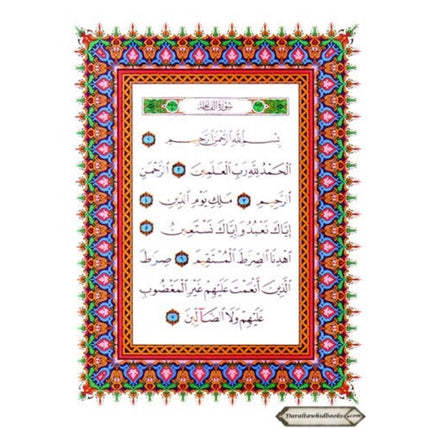 سُورَةُ الفَاتِحَة
بِسْمِ اللَّهِ الرَّحْمَٰنِ الرَّحِيمِ ١
الْحَمْدُ لِلَّهِ رَبِّ الْعَالَمِينَ ٢ الرَّحْمَٰنِ
الرَّحِيمِ ٣ مَلِكِ يَوْمِ الدِّينِ ٤
إِيَّاكَ نَعْبُدُ وَإِيَّاكَ نَسْتَعِينُ ٥
اهْدِنَا الصِّرَاطَ الْمُسْتَقِيمَ ٦ صِرَاطَ
الَّذِينَ أَنْعَمْتَ عَلَيْهِمْ غَيْرِ الْمَغْضُوبِ
عَلَيْهِمْ وَلَا الضَّالِّينَ ٧
Daraltawhidbooks.com